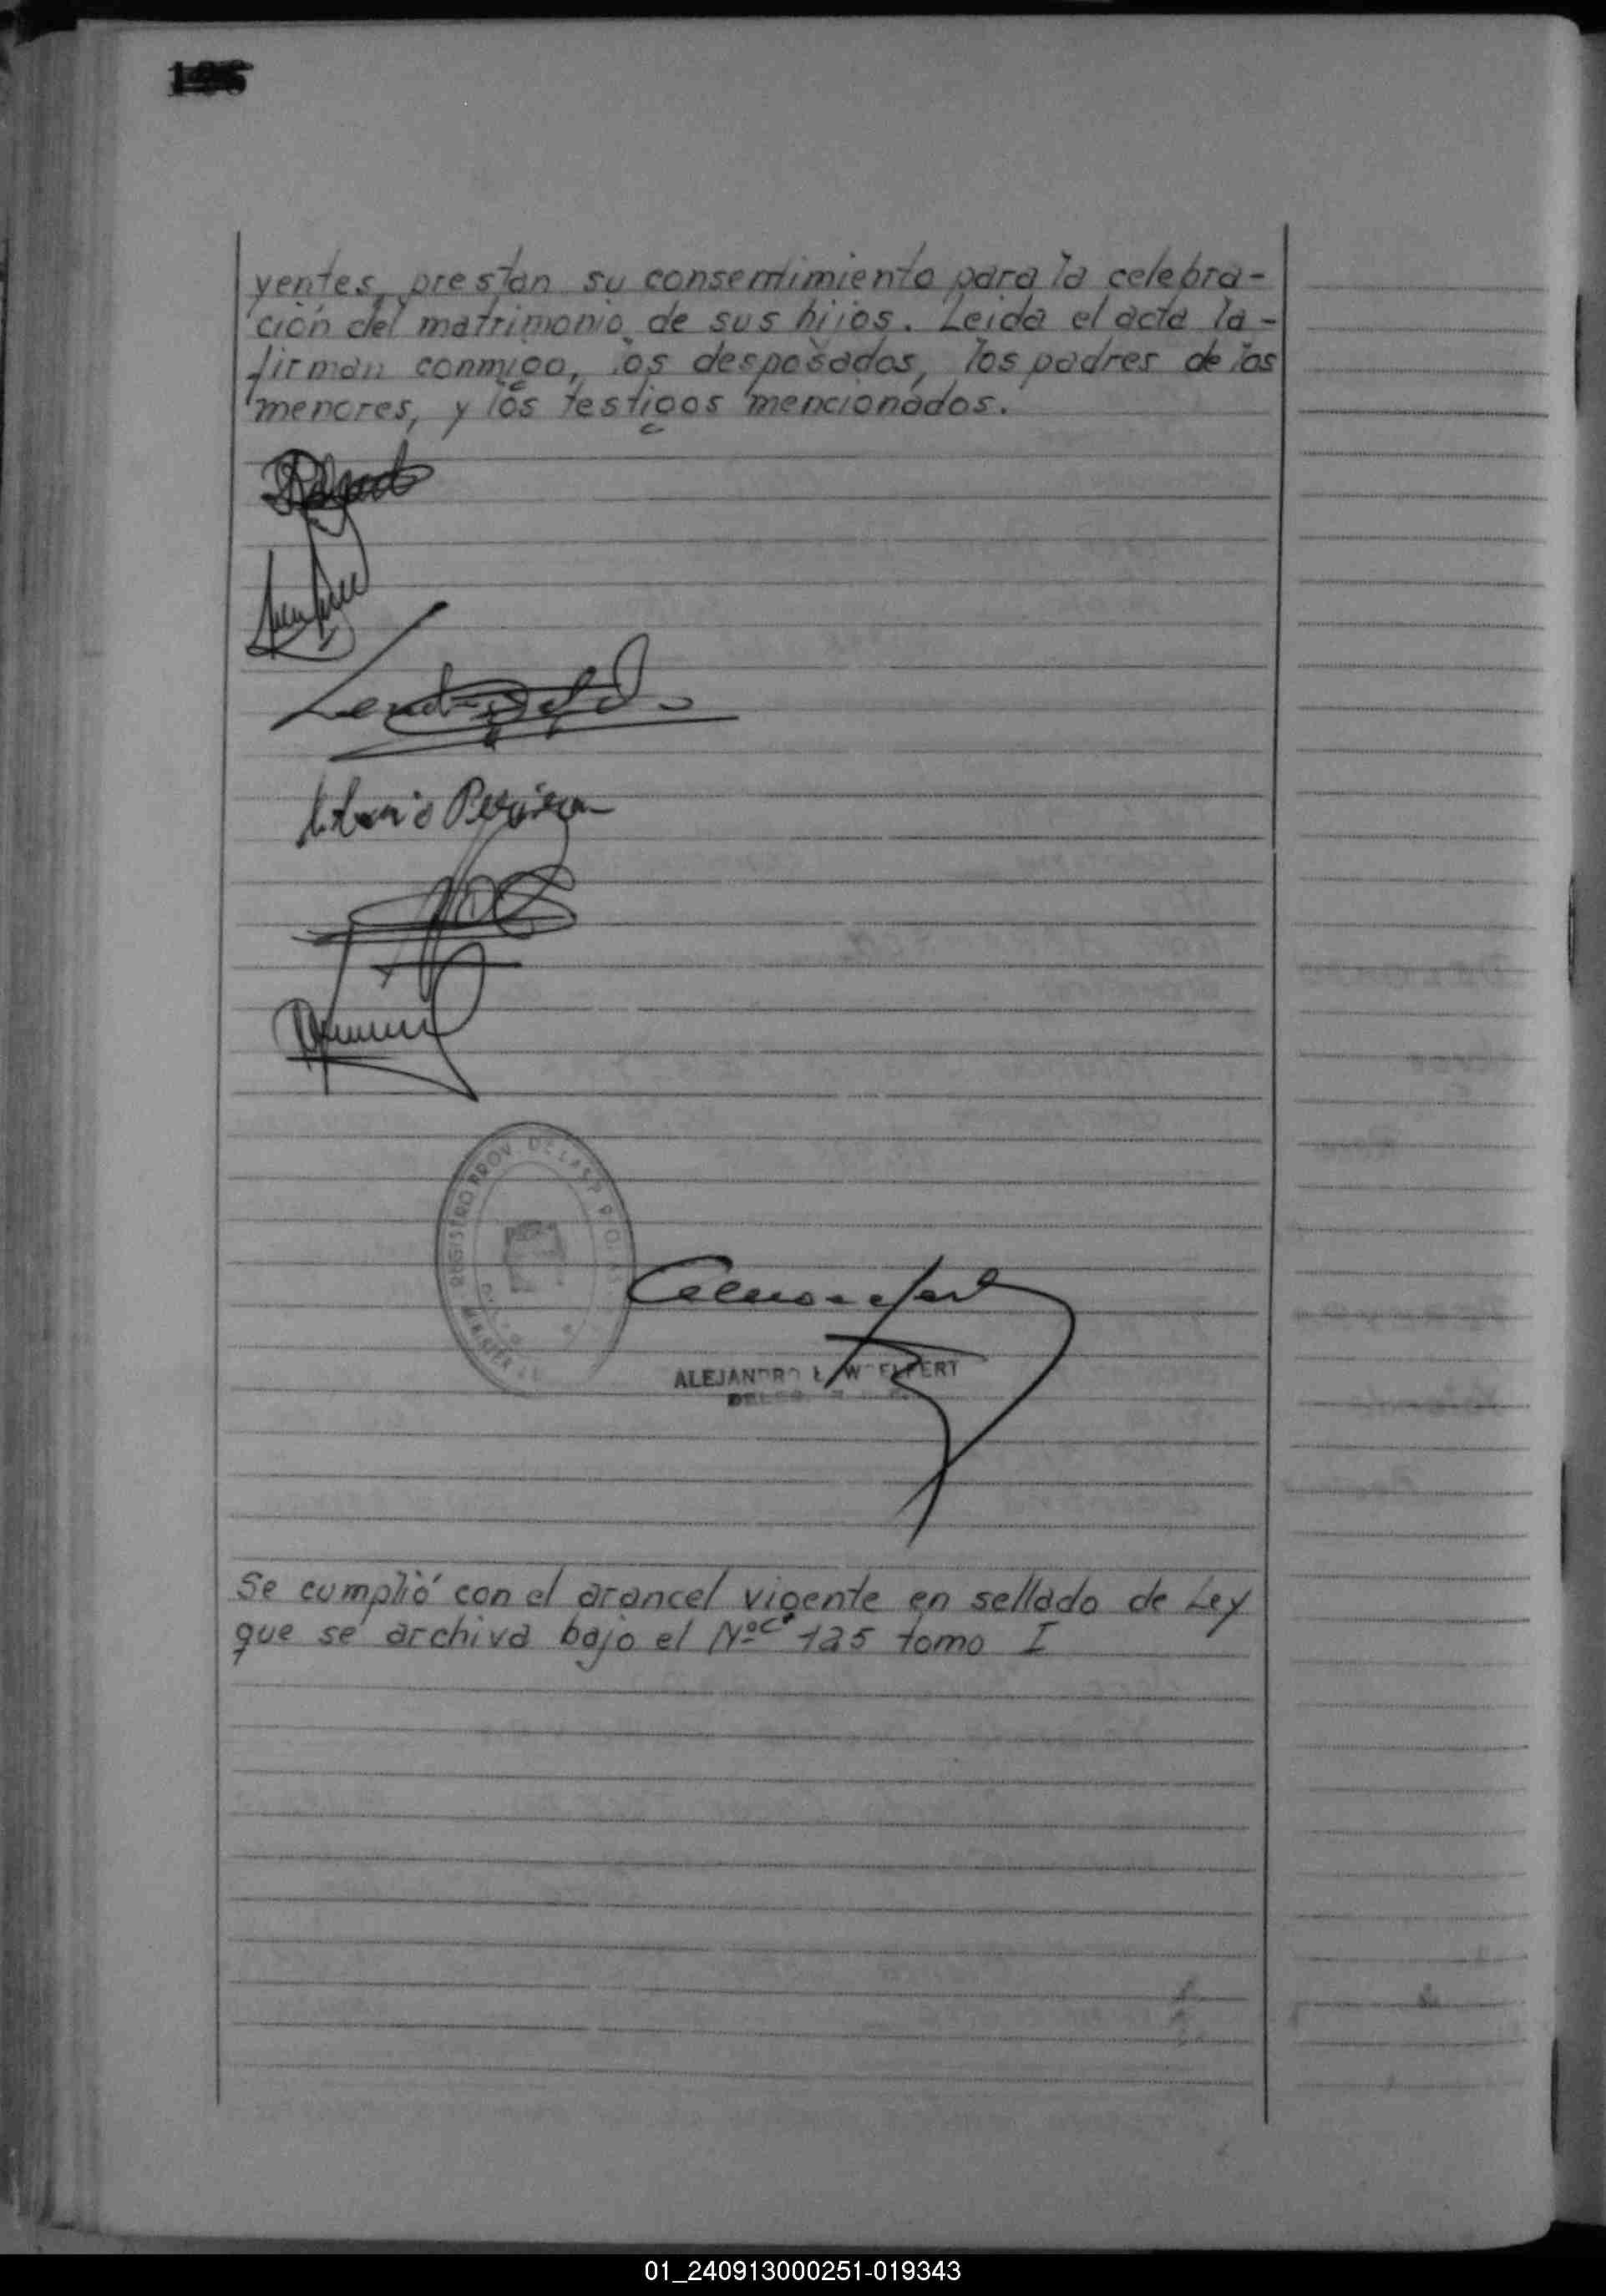 yentes, prestan su consentimiento para la celebra-
ción del matrimonio de sus hijos. Leida el acta la-
firman conmigo, los desposados, los padres de los
menores, y los testigos mencionados.
Antonio Pereira
REGISTRO PROV. DE LAS P
ALEJANDRO L WOELFERT
Se cumplió con el arancel vigente en sellado de Ley
que se archiva bajo el Nº 125 tomo I
01_240913000251-019343